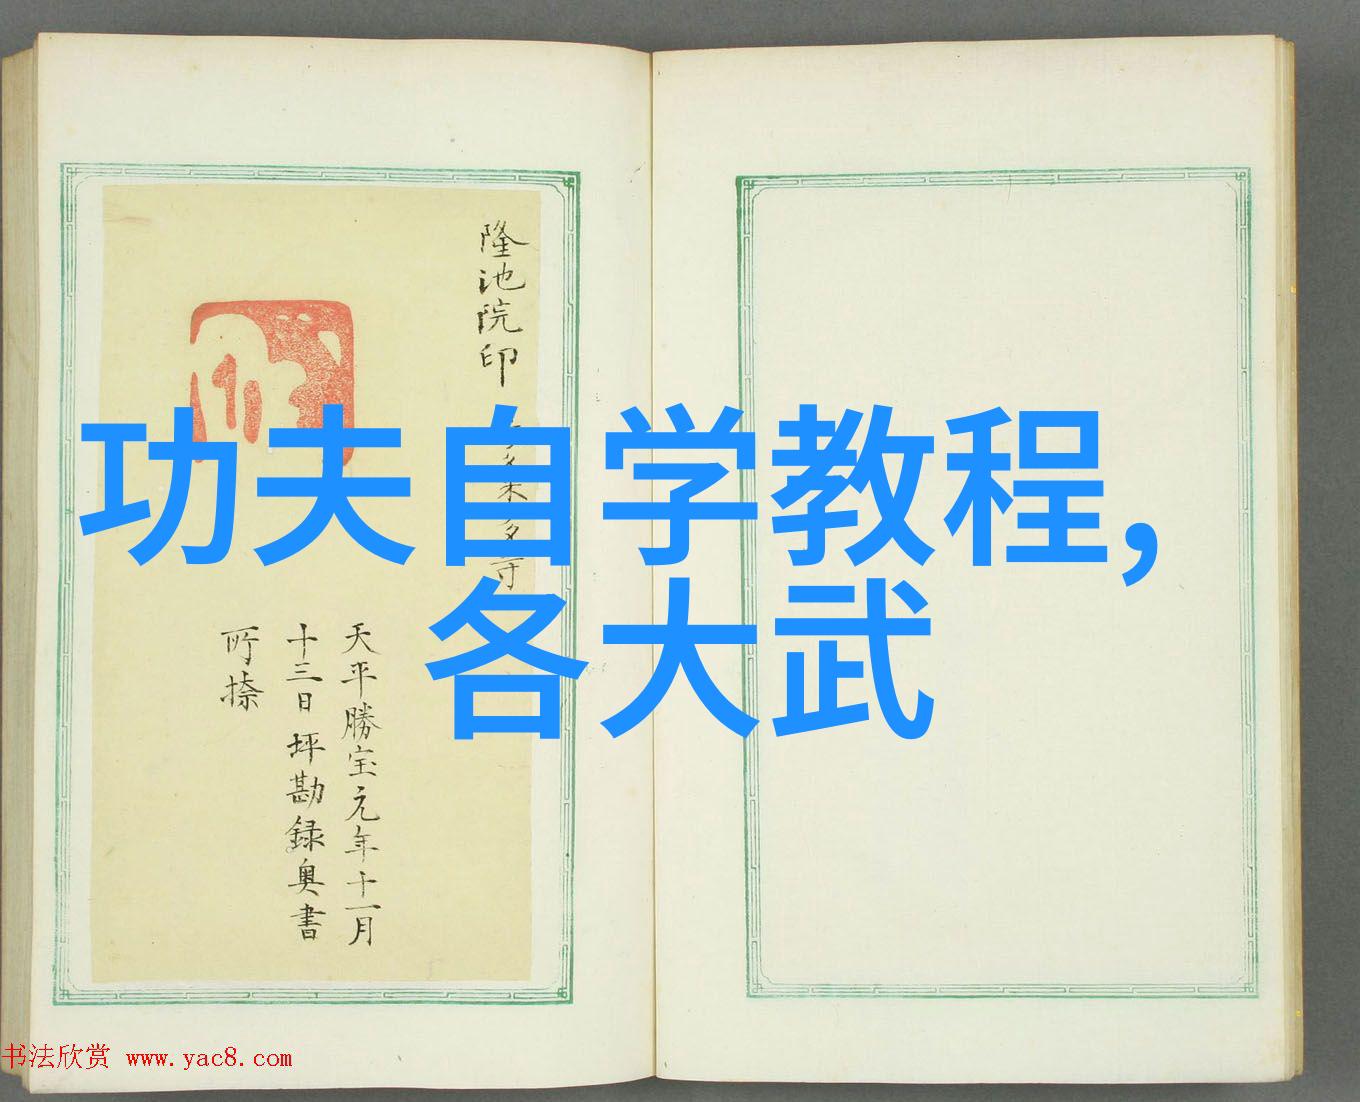 隆池院印
功夫自学教程,
各大武
天平勝宝元年十一月
十三日坪勘録奥書
所捺
书法欣赏 www.yac8.com